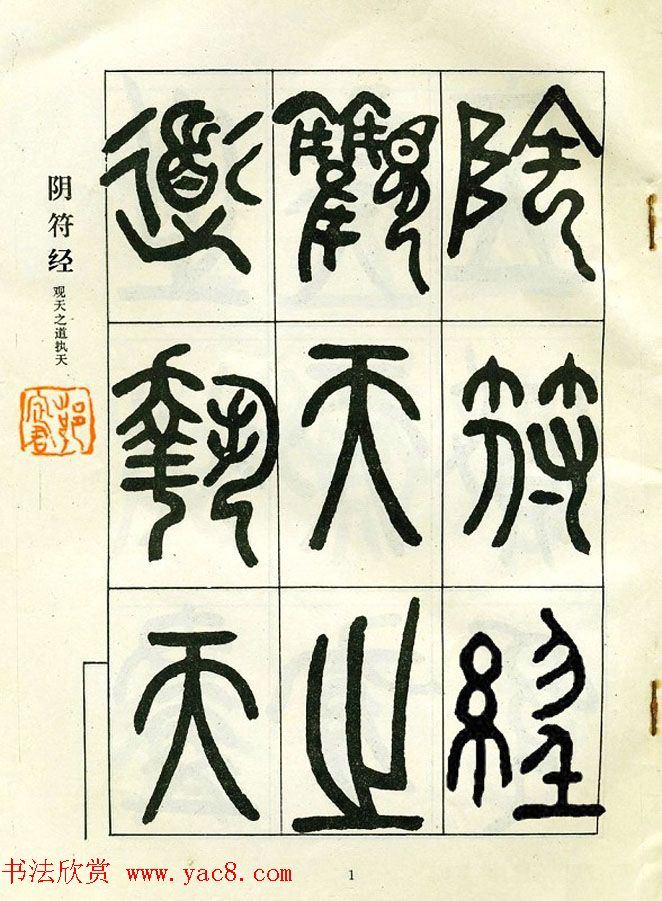 陰符經
觀天之
道執天
阴符经 观天之道执天
1
书法欣赏 www.yac8.com